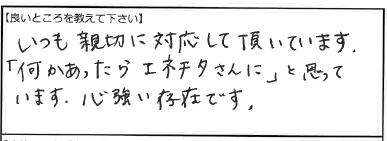 【良いところを教えて下さい】
いつも親切に対応して頂いています.
「何かあったらエネチタさんに」と思って
います. 心強い存在です.